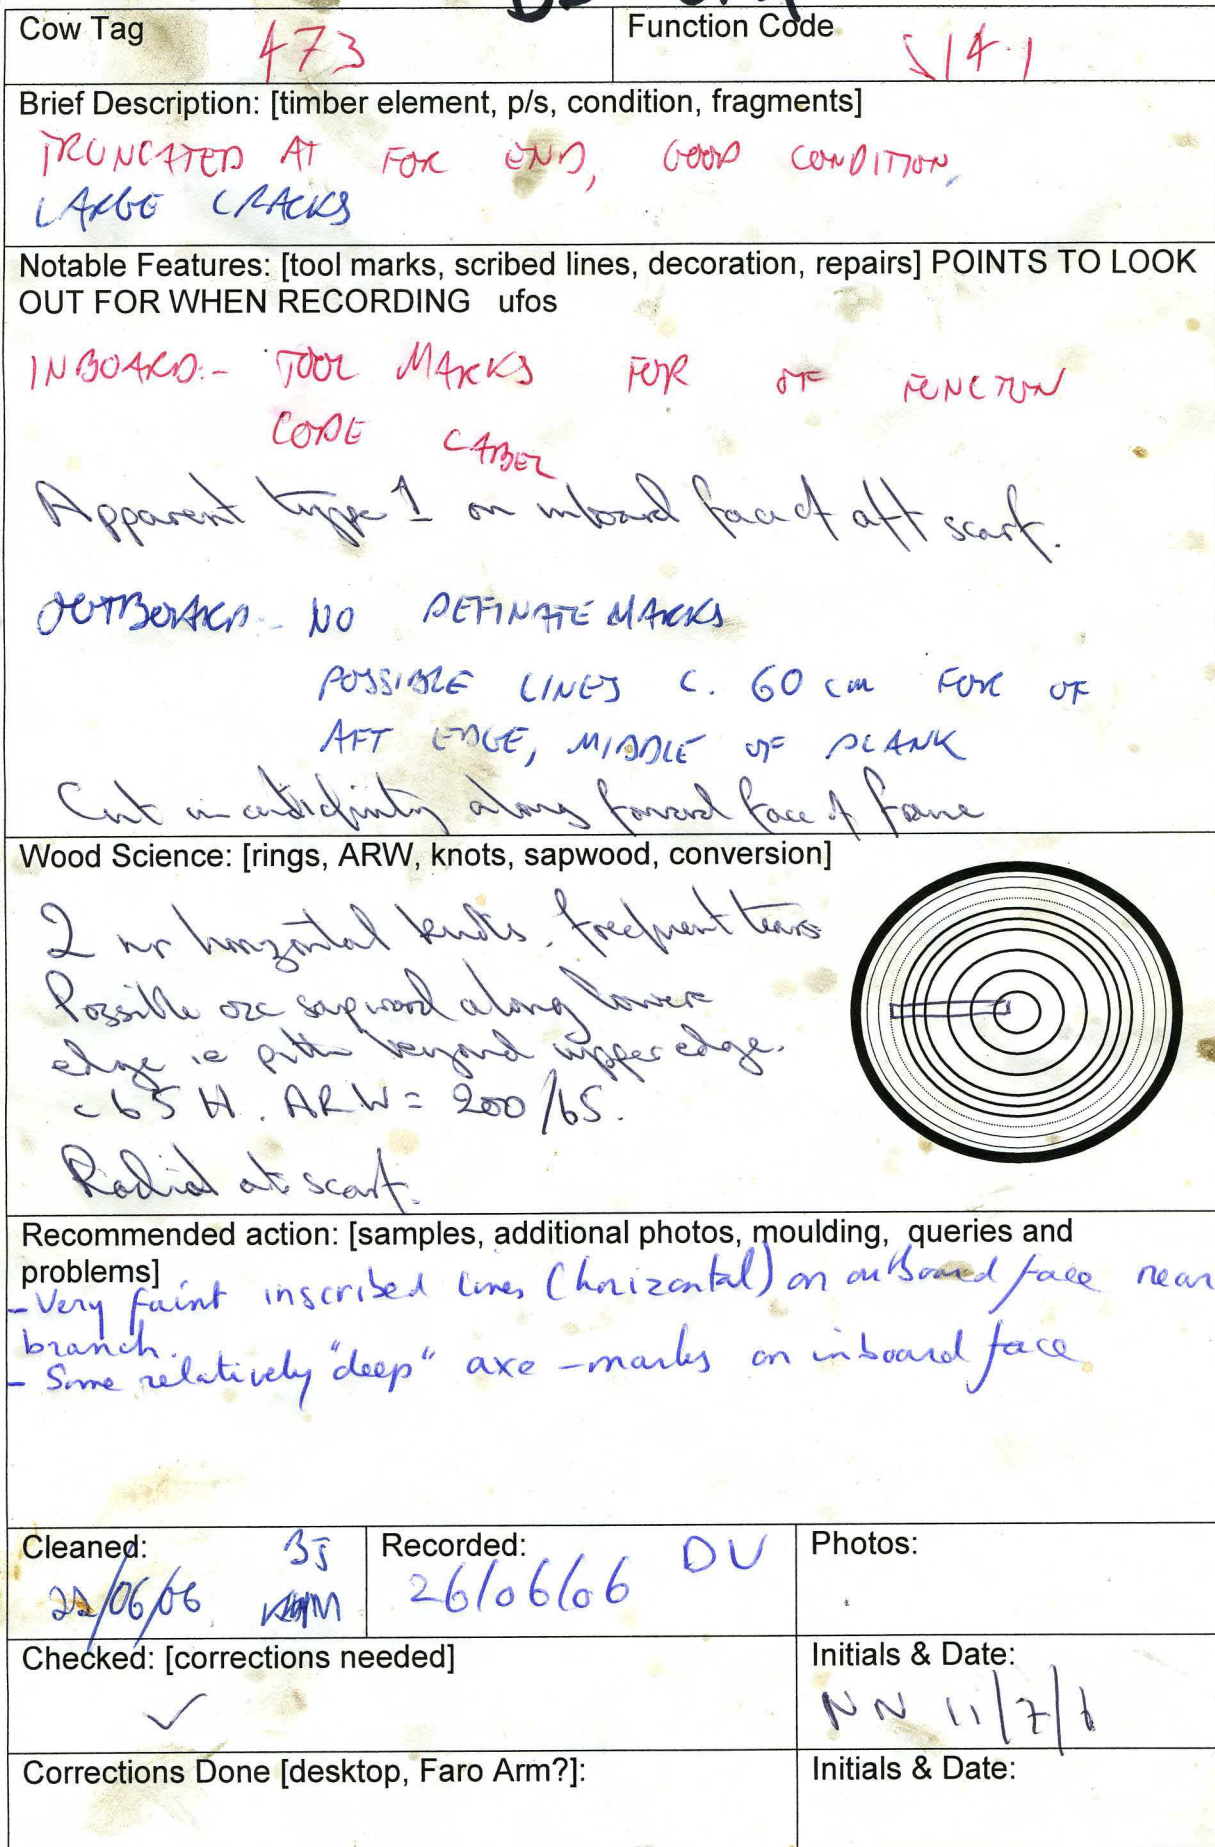 Cow Tag 473 Function Code S14.1
Brief Description: [timber element, p/s, condition, fragments]
TRUNCATED AT FOR END, GOOD CONDITION,
LARGE CRACKS
Notable Features: [tool marks, scribed lines, decoration, repairs] POINTS TO LOOK
OUT FOR WHEN RECORDING ufos
INBOARD:- TOOL MARKS FOR OF FUNCTON
CODE LABEL
Apparent type 1 on inboard face of aft scarf.
OUTBOARD- NO DEFINATE MARKS
POSSIBLE LINES C. 60 cm FOR OF
AFT EDGE, MIDDLE OF PLANK
Cut in along forward face of frame
Wood Science: [rings, ARW, knots, sapwood, conversion]
2 nr horizontal knots. frequent tears
Possible sapwood along lower
edge ie pith beyond upper edge.
c65 H. ARW = 200/65.
Radial at scarf.
Recommended action: [samples, additional photos, moulding, queries and
problems]
- Very faint inscribed lines (horizontal) on outboard face near
branch.
- Some relatively "deep" axe-marks on inboard face
Cleaned: BJ Recorded: DV Photos:
22/06/06 26/06/06
Checked: [corrections needed] Initials & Date:
✓ NN 11/7/6
Corrections Done [desktop, Faro Arm?]: Initials & Date: